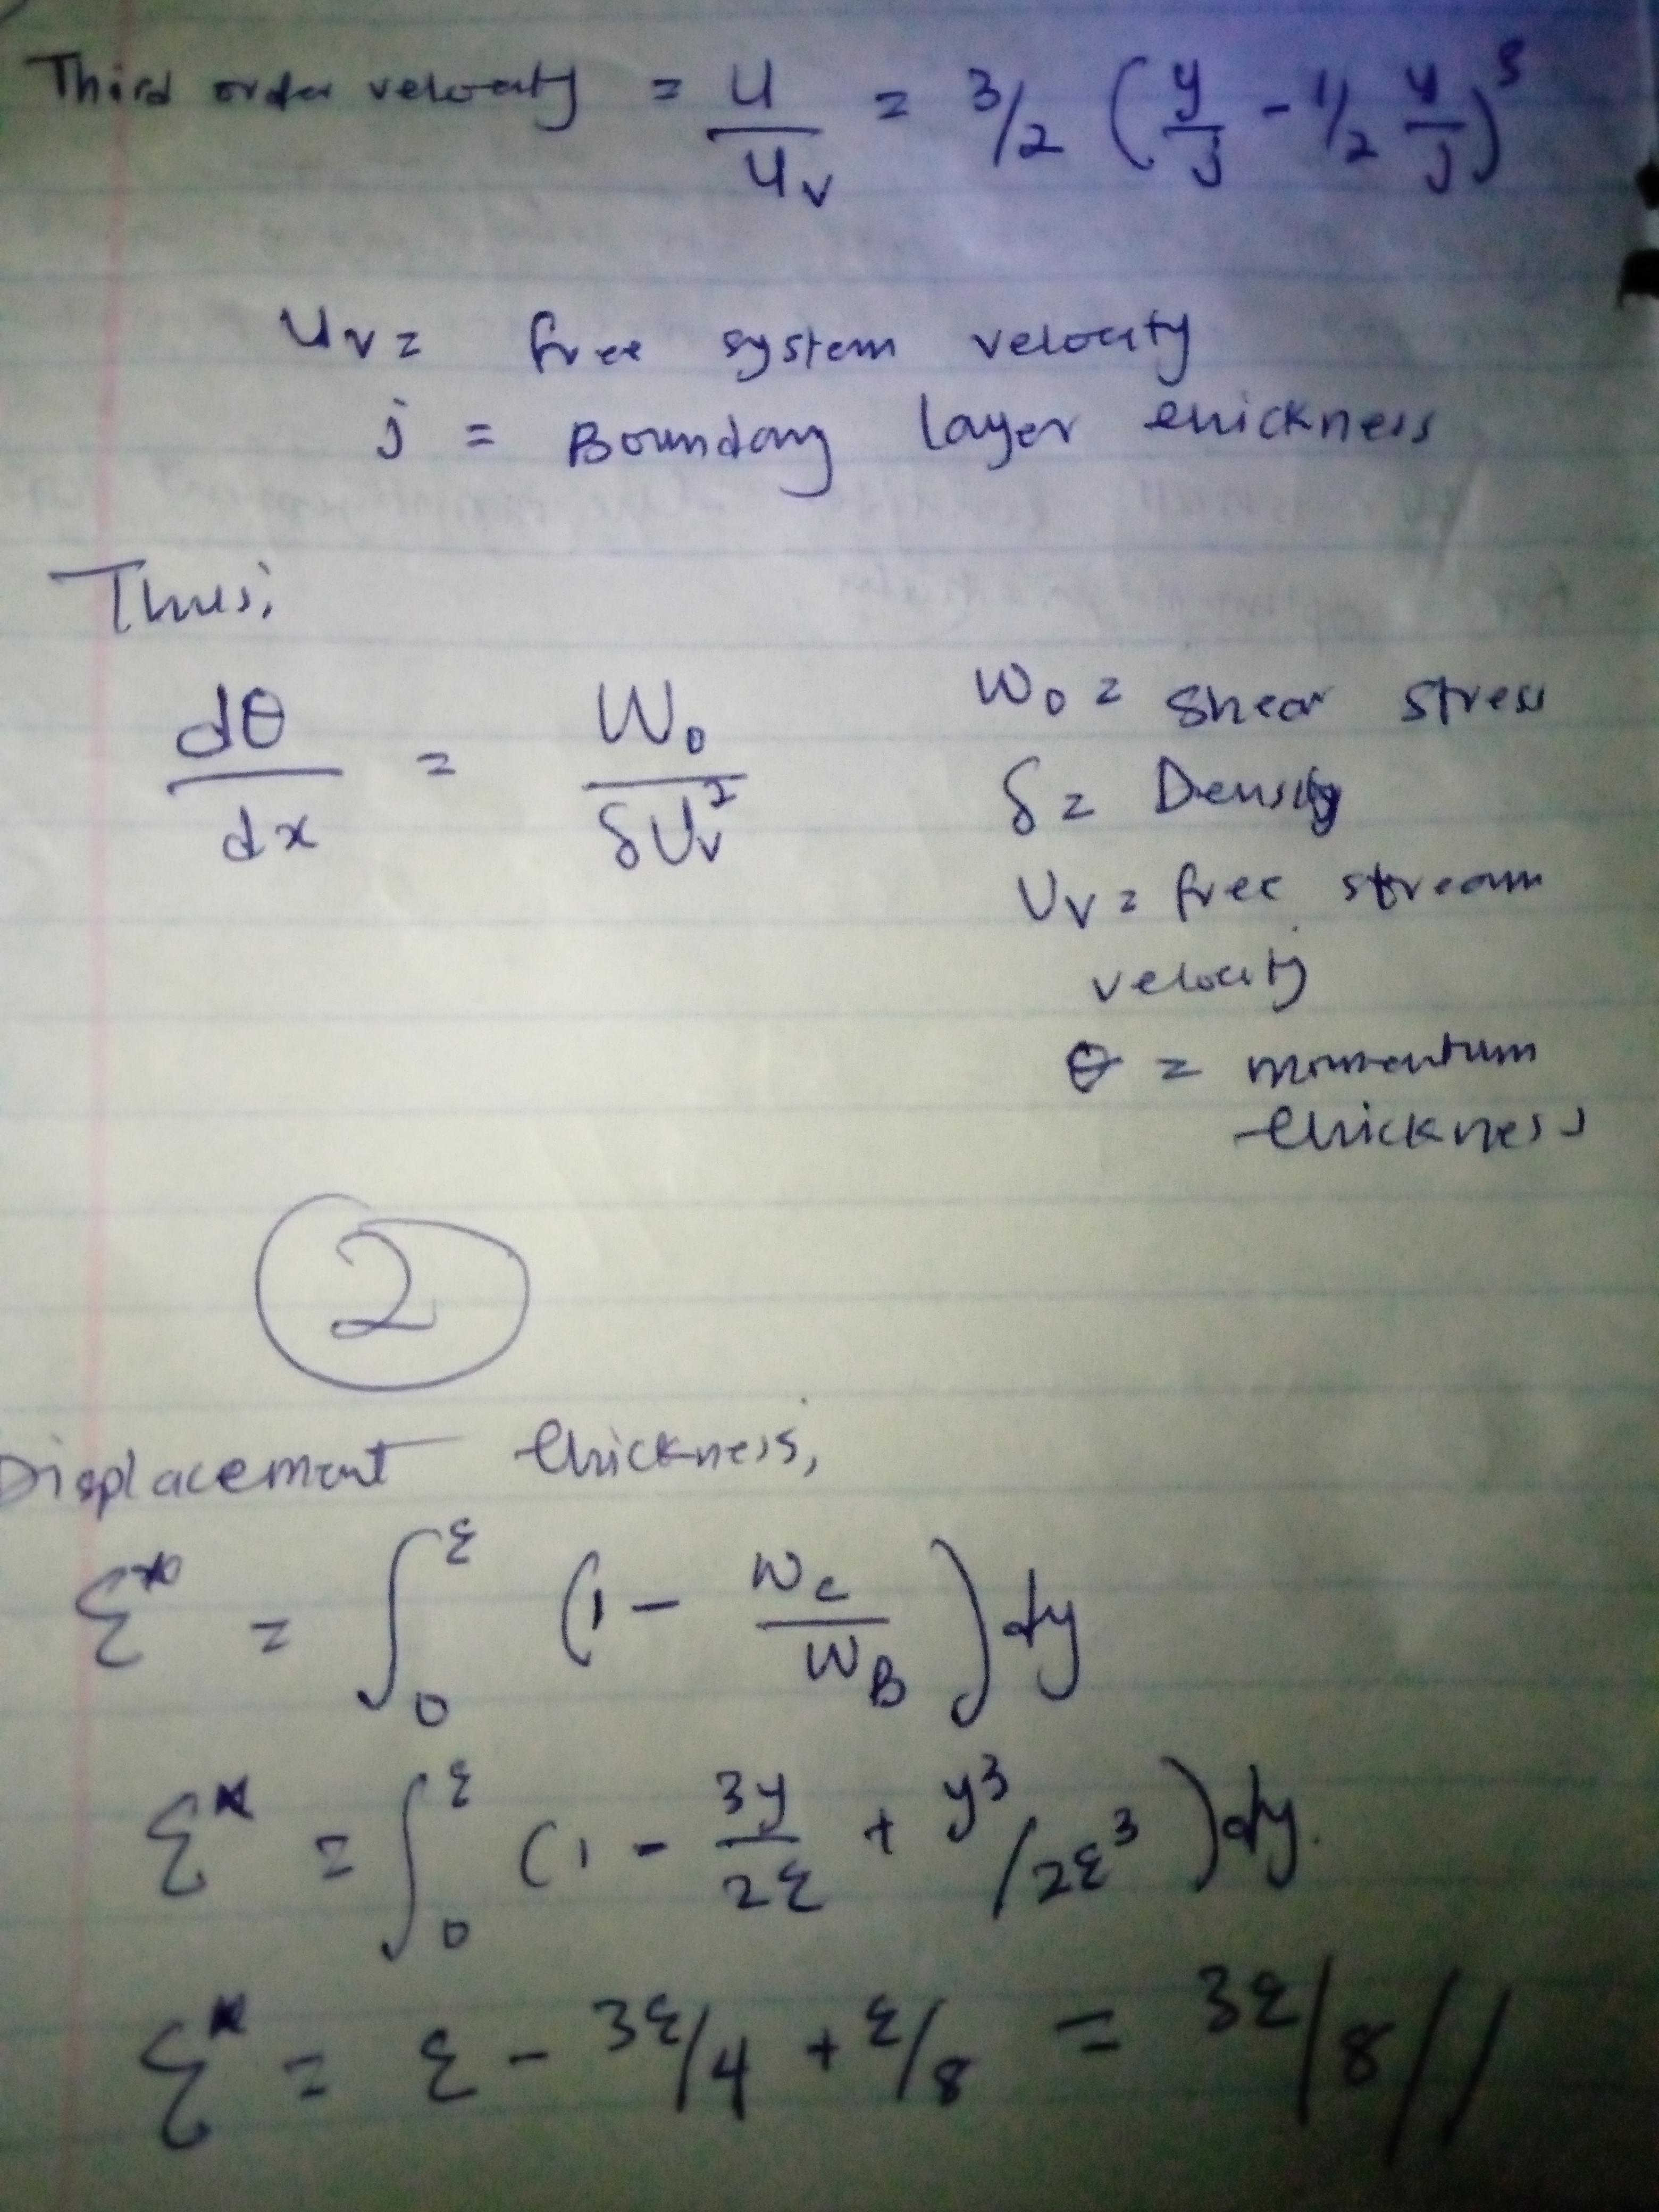 Third order velocity = u/u_v = 3/2 (y/j - 1/2 y/j)^3
u_v = free system velocity
j = Boundary layer thickness
Thus;
dθ/dx = W_0/δU_v^2
W_0 = Shear stress
δ = Density
U_v = free stream
velocity
θ = momentum
thickness
2
Displacement thickness,
Ɛ* = ∫_0^Ɛ (1 - W_c/W_B) dy
Ɛ* = ∫_0^Ɛ (1 - 3y/2Ɛ + y^3/2Ɛ^3) dy.
Ɛ* = Ɛ - 3Ɛ/4 + Ɛ/8 = 3Ɛ/8//